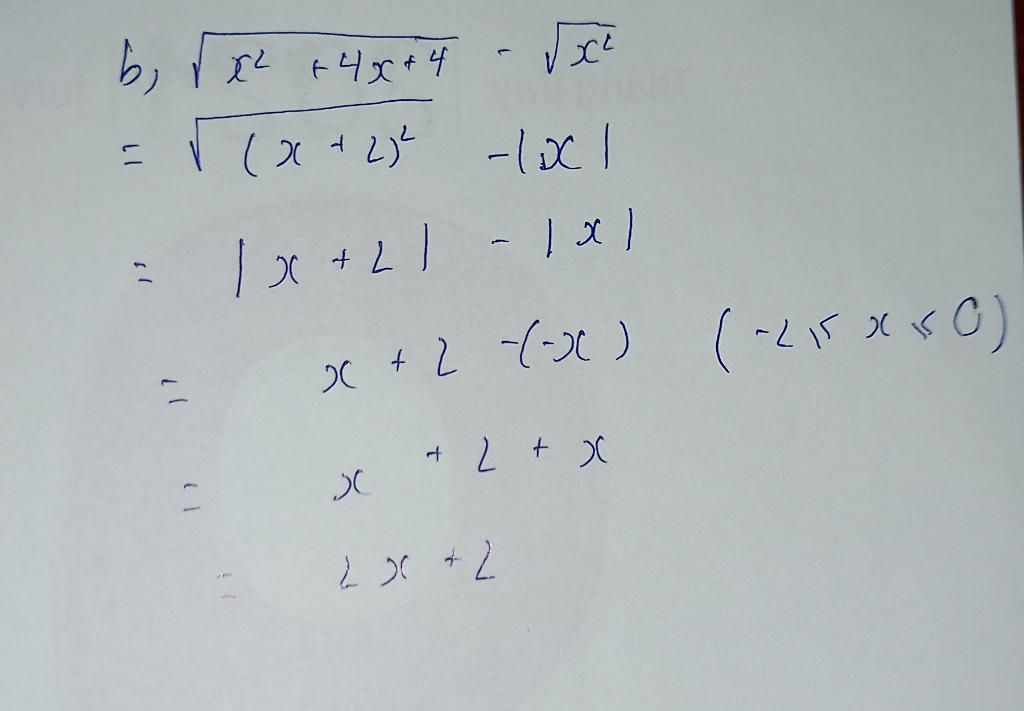 b, √(x² + 4x + 4) - √x²
= √(x + 2)² - |x|
= |x + 2| - |x|
= x + 2 - (-x) (-2 ≤ x ≤ 0)
= x + 2 + x
= 2x + 2